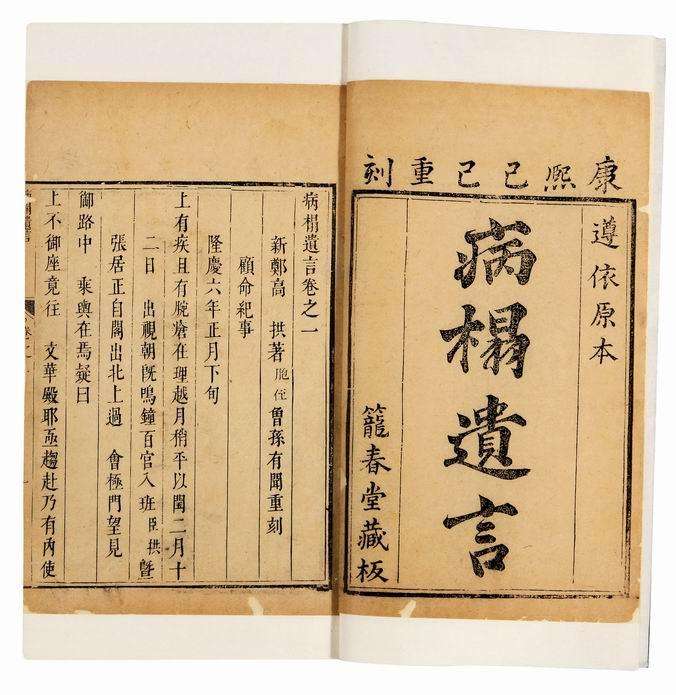 康熙己巳重刻
遵依原本
病榻遺言
籠春堂藏板
病榻遺言卷之一
新鄭高 拱著 胞侄曾孫有聞重刻
顧命紀事
隆慶六年正月下旬
上有疾且有腕瘡在理越月稍平以閏二月十
二日 出視朝旣鳴鐘百官入班臣拱曁
張居正自閣出北上過 會極門望見
御路中 乘輿在焉疑曰
上不御座竟往 文華殿耶亟趨赴乃有內使